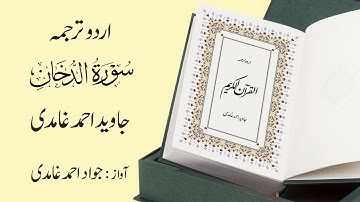 اردو ترجمہ
سورۃ الدخان
جاوید احمد غامدی
آواز : جواد احمد غامدی
اردو ترجمہ
القرآن الکریم
جاوید احمد غامدی